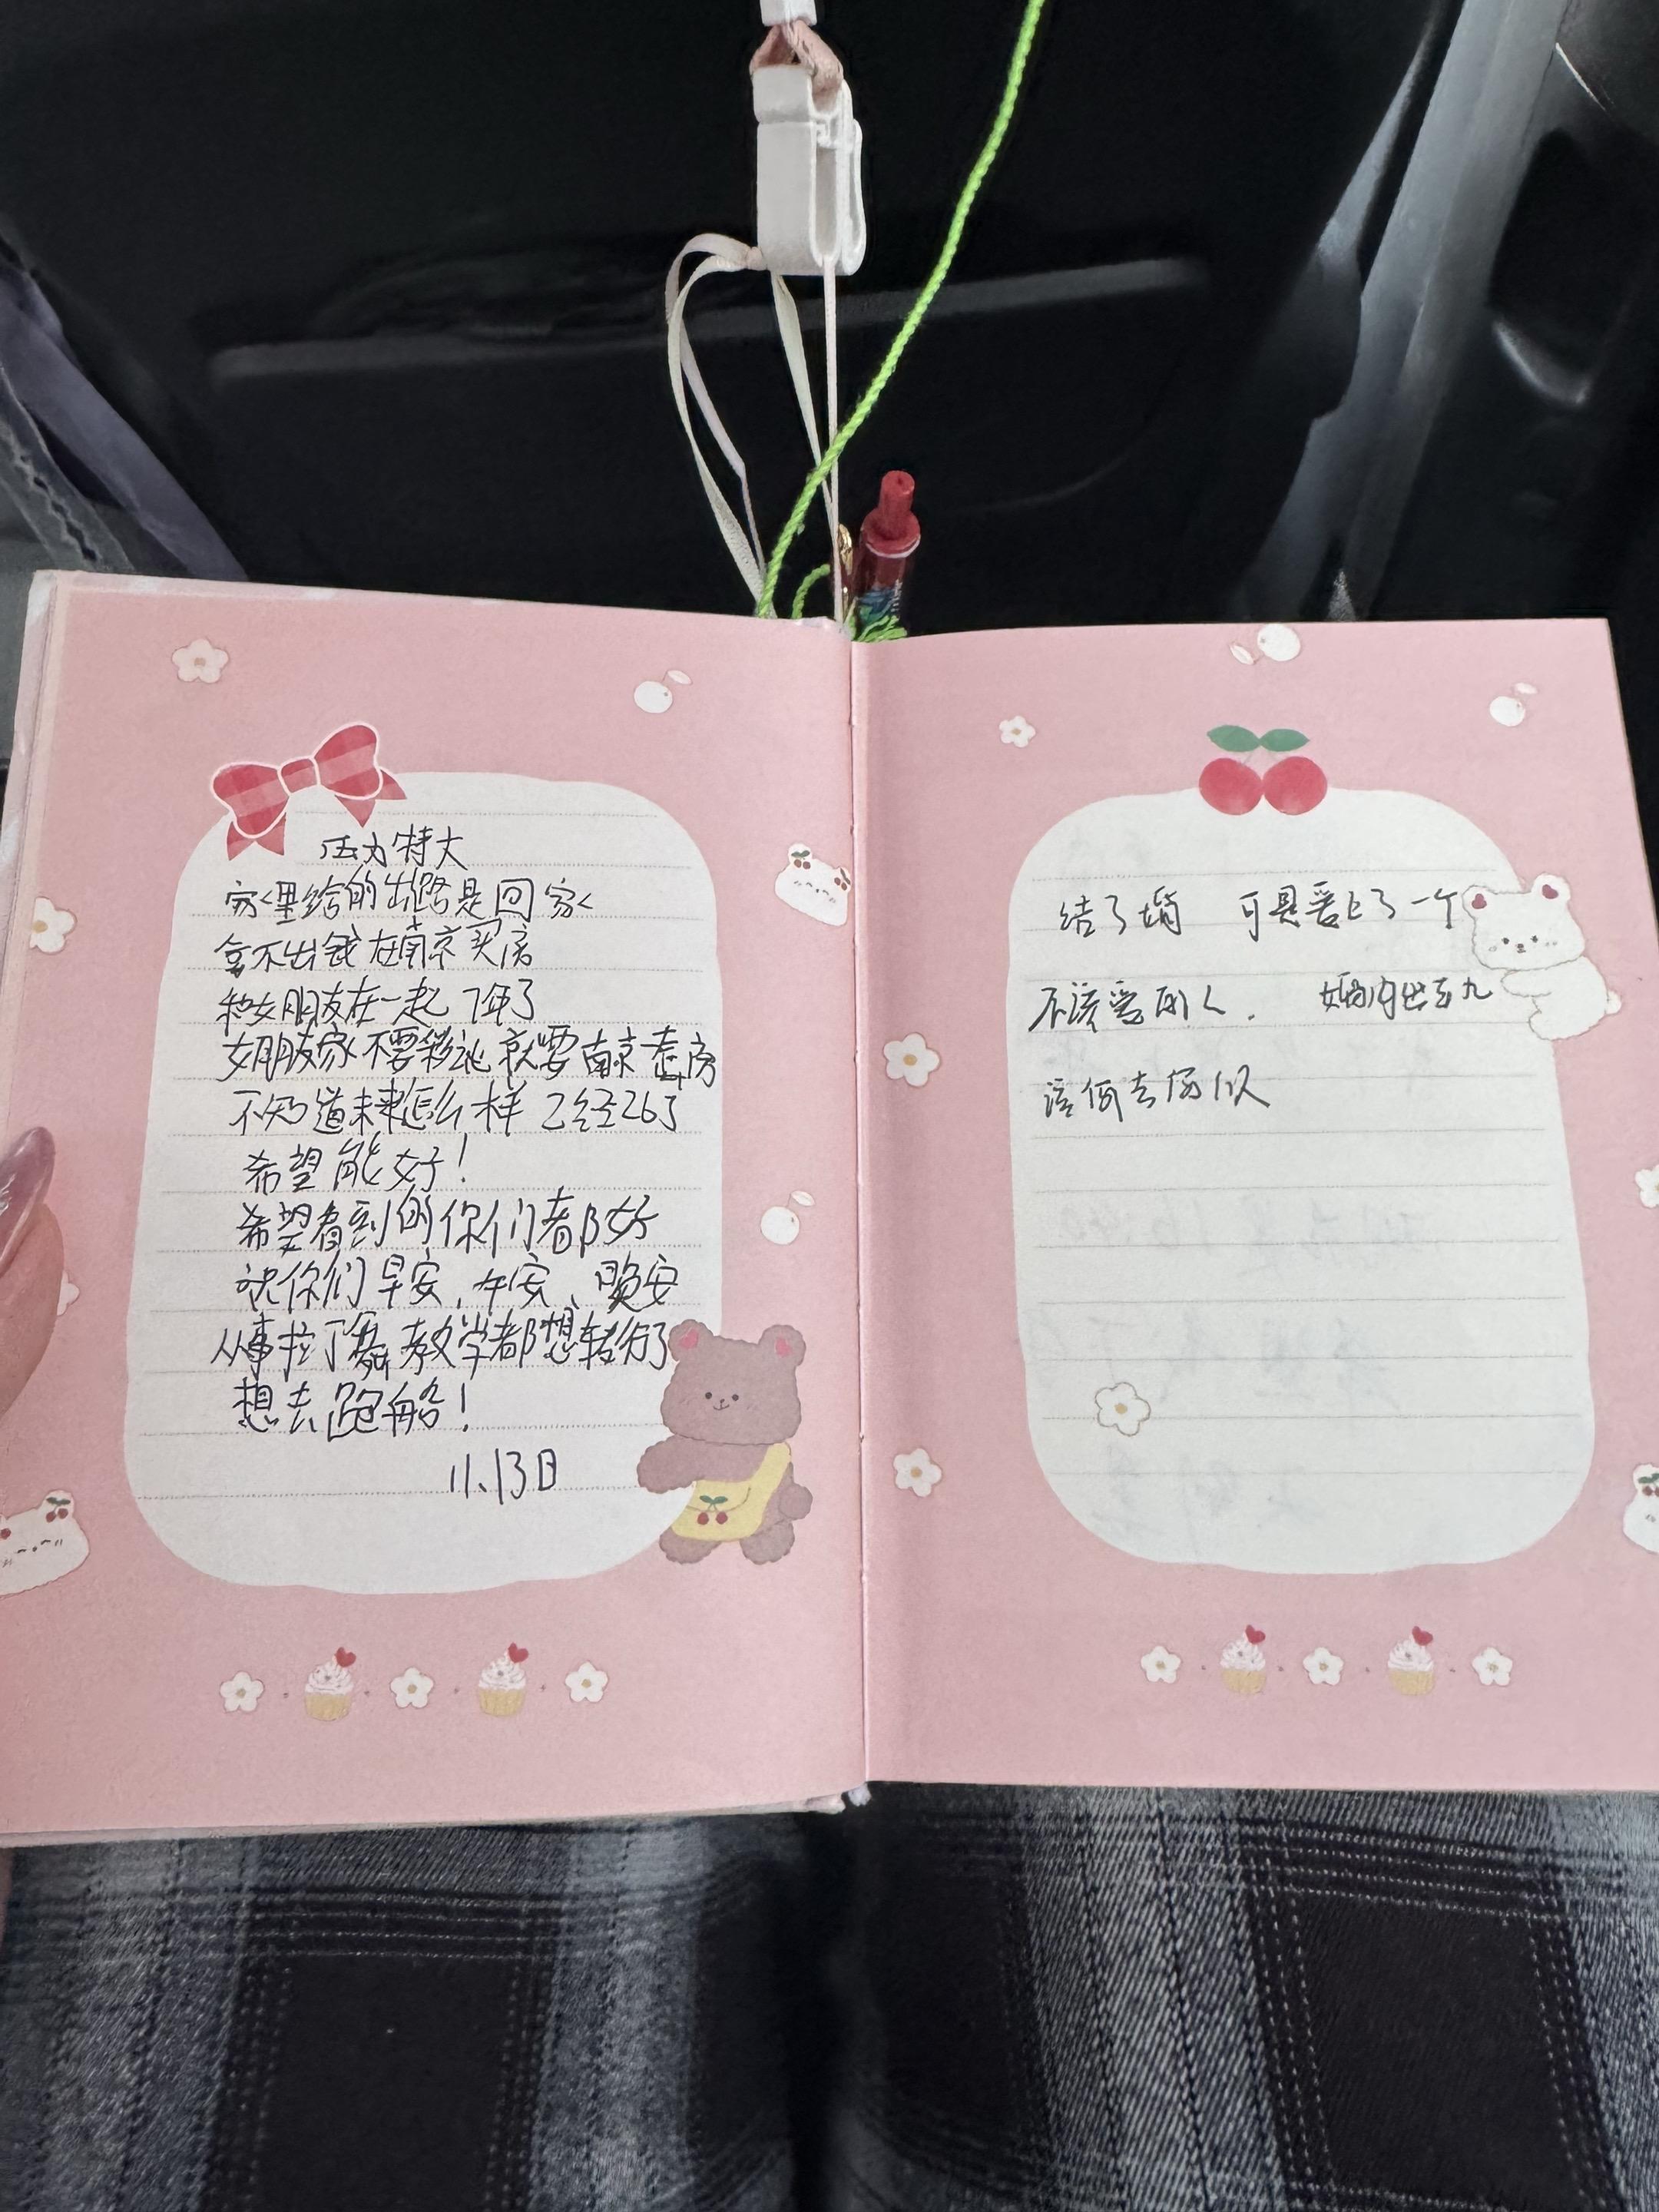 压力特大
家里给的出路是回家
拿不出钱在南京买房
和女朋友在一起7年了
女朋友家不要彩礼就要南京一套房
不知道未来怎么样 已经26了
希望能好!
希望看到的你们都好
祝你们早安、午安、晚安
从事拉丁舞教学都想转行了
想去跑船!
11.13日
结了婚 可是爱上了一个
不该爱的人. 婚内出轨
该何去何从